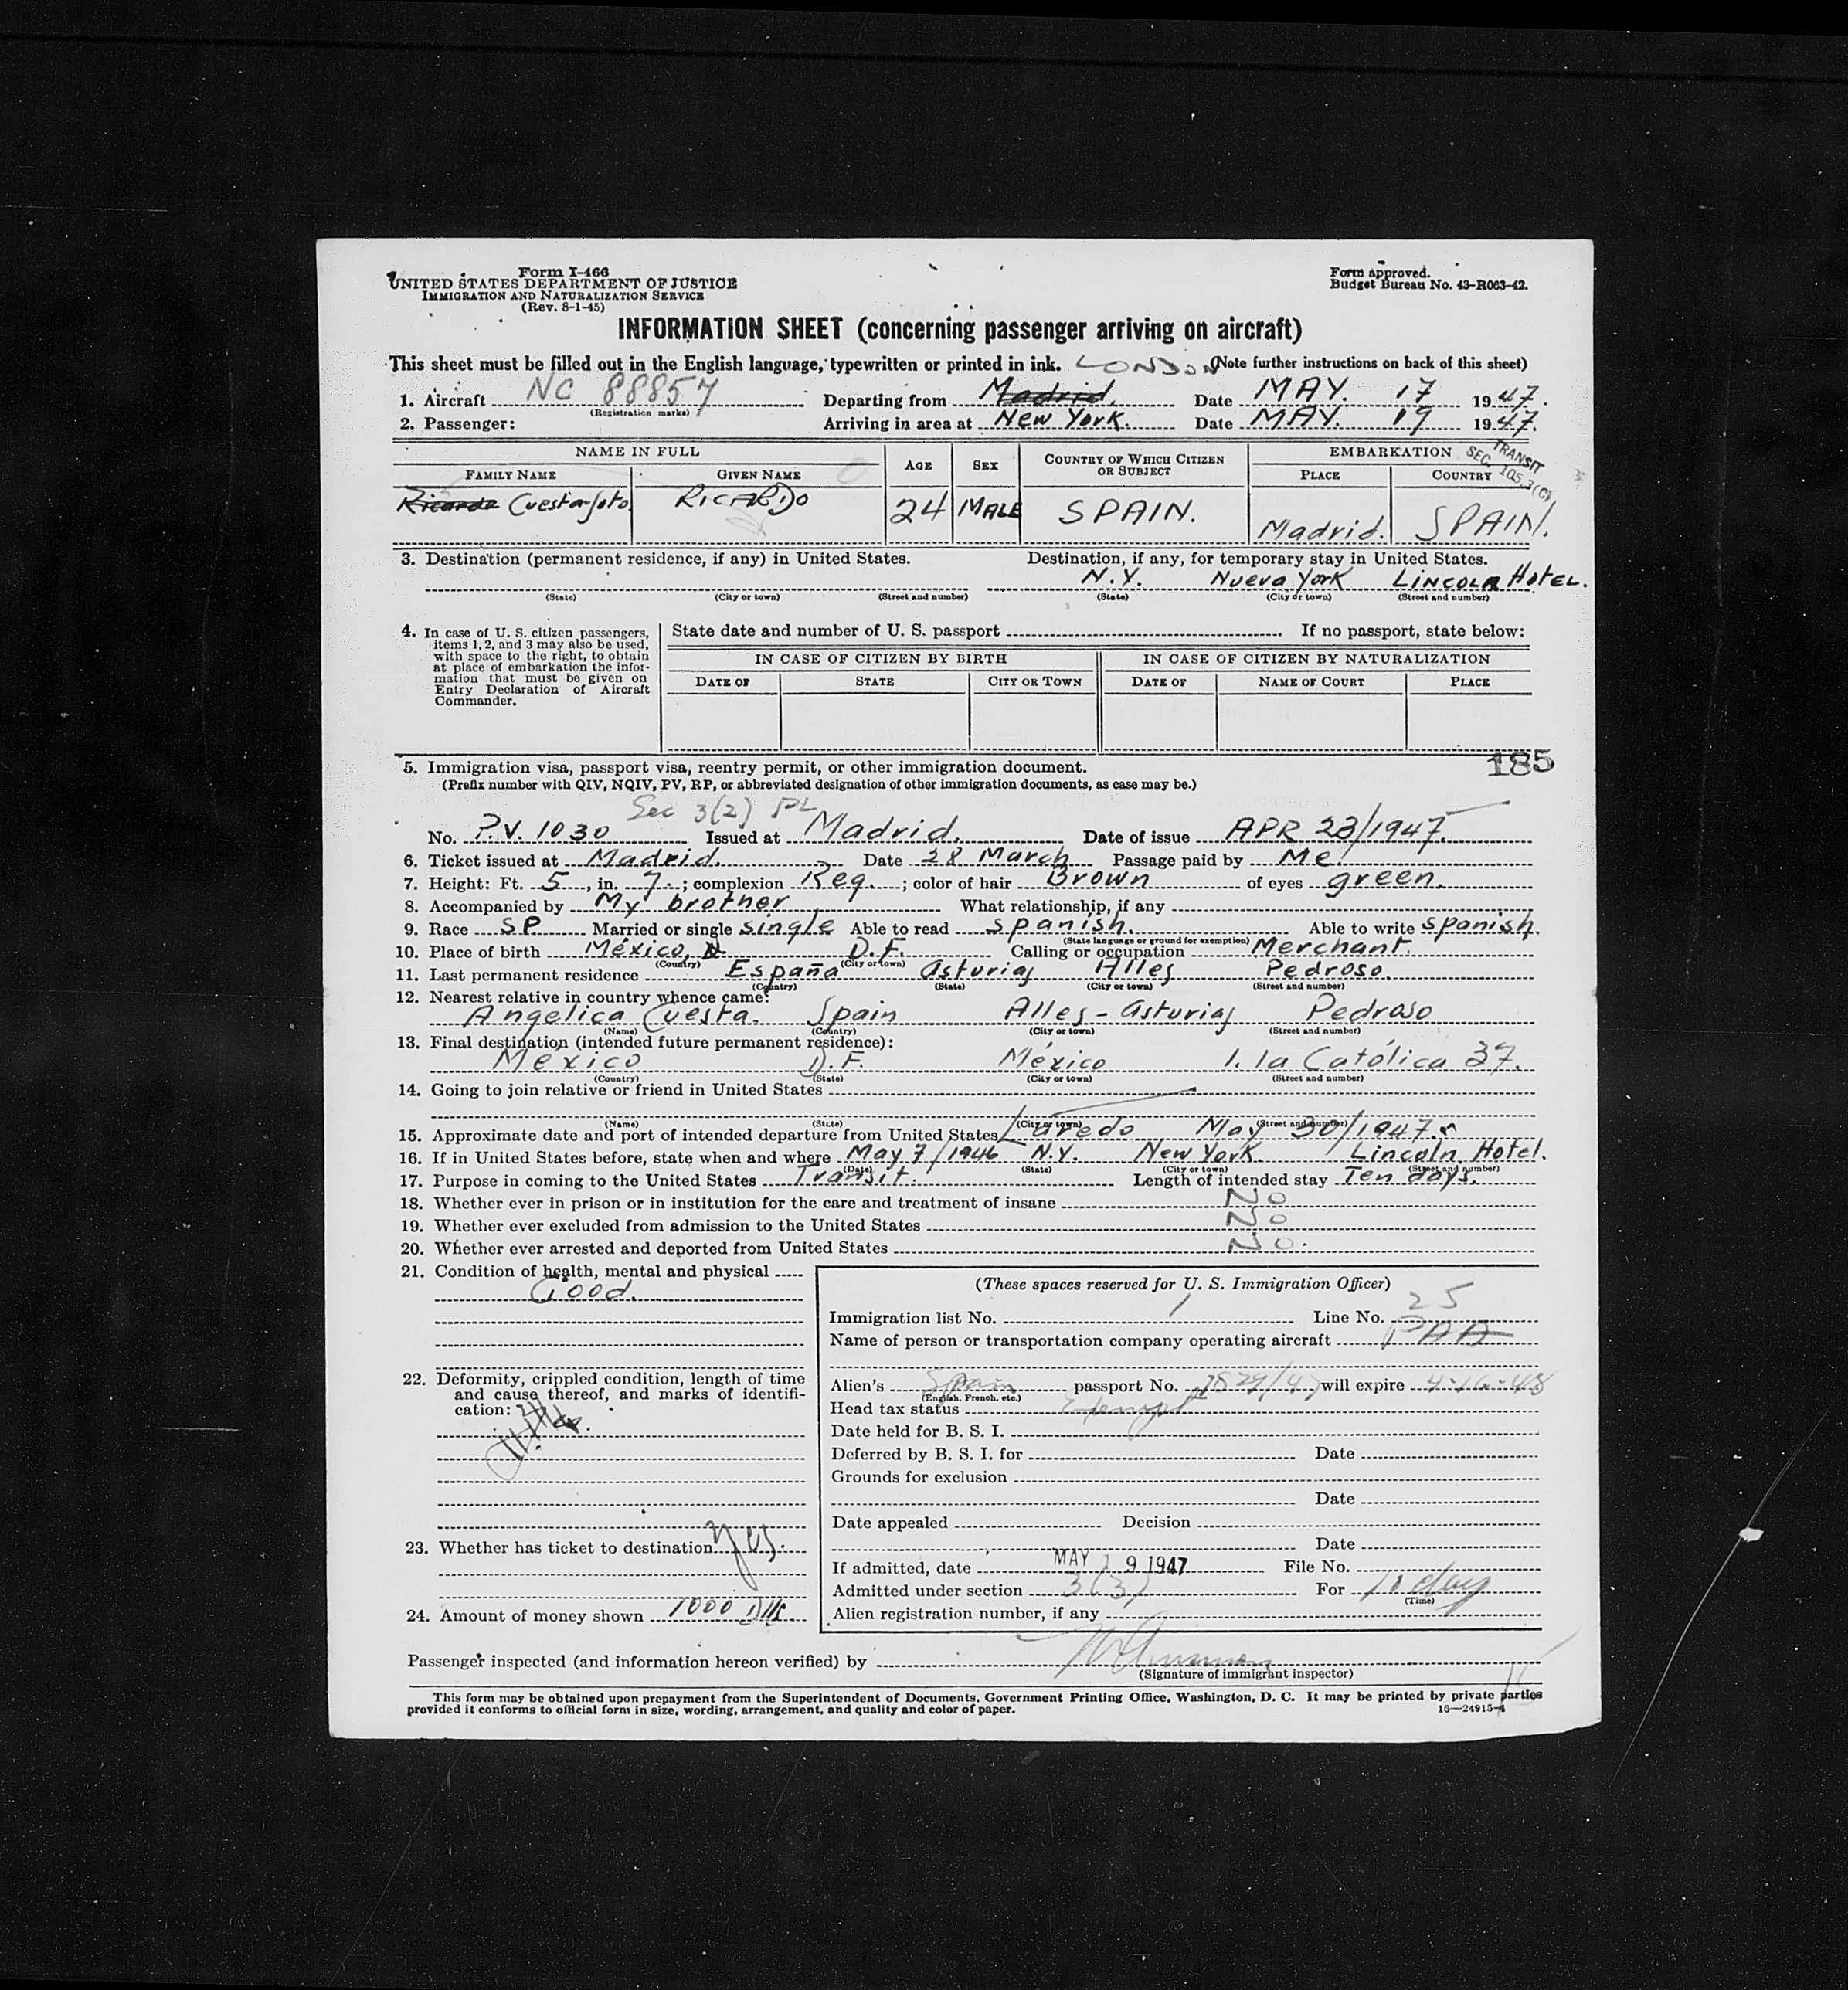 Form I-466
UNITED STATES DEPARTMENT OF JUSTICE
IMMIGRATION AND NATURALIZATION SERVICE
(Rev. 8-1-45)
Form approved.
Budget Bureau No. 43-R063-42.
INFORMATION SHEET (concerning passenger arriving on aircraft)
This sheet must be filled out in the English language, typewritten or printed in ink. LONDON (Note further instructions on back of this sheet)
1. Aircraft NC 88857 Departing from Madrid. Date MAY. 17 1947.
(Registration marks)
2. Passenger: Arriving in area at New York. Date MAY. 19 1947.
NAME IN FULL AGE SEX COUNTRY OF WHICH CITIZEN OR SUBJECT EMBARKATION TRANSIT SEC. 105.3(C)
FAMILY NAME GIVEN NAME PLACE COUNTRY
Ricardo Cuesta Soto RICARDO 24 MALE SPAIN. Madrid. SPAIN.
3. Destination (permanent residence, if any) in United States. Destination, if any, for temporary stay in United States.
N.Y. Nueva York Lincoln Hotel.
(State) (City or town) (Street and number) (State) (City or town) (Street and number)
4. In case of U. S. citizen passengers, items 1, 2, and 3 may also be used, with space to the right, to obtain at place of embarkation the information that must be given on Entry Declaration of Aircraft Commander.
State date and number of U. S. passport If no passport, state below:
IN CASE OF CITIZEN BY BIRTH IN CASE OF CITIZEN BY NATURALIZATION
DATE OF STATE CITY OR TOWN DATE OF NAME OF COURT PLACE
185
5. Immigration visa, passport visa, reentry permit, or other immigration document.
(Prefix number with QIV, NQIV, PV, RP, or abbreviated designation of other immigration documents, as case may be.)
Sec 3(2)
No. P.V. 1030 Issued at Madrid. Date of issue APR 23/1947.
6. Ticket issued at Madrid. Date 28 March Passage paid by Me.
7. Height: Ft. 5, in. 7.; complexion Reg.; color of hair Brown of eyes green.
8. Accompanied by My brother What relationship, if any
9. Race SP Married or single single Able to read spanish. Able to write spanish.
(State language or ground for exemption)
10. Place of birth México, D.F. Calling or occupation Merchant.
(Country) (City or town)
11. Last permanent residence España Asturias Alles Pedroso.
(Country) (State) (City or town) (Street and number)
12. Nearest relative in country whence came:
Angelica Cuesta. Spain Alles - Asturias Pedroso
(Name) (Country) (City or town) (Street and number)
13. Final destination (intended future permanent residence):
Mexico D.F. México I. la Católica 37.
(Country) (State) (City or town) (Street and number)
14. Going to join relative or friend in United States
(Name) (State) (City or town) (Street and number)
15. Approximate date and port of intended departure from United States Laredo May 30/1947.
16. If in United States before, state when and where May 7/1946 N.Y. New York. Lincoln Hotel.
(Date) (State) (City or town) (Street and number)
17. Purpose in coming to the United States Transit. Length of intended stay Ten days.
18. Whether ever in prison or in institution for the care and treatment of insane No
19. Whether ever excluded from admission to the United States No
20. Whether ever arrested and deported from United States No.
21. Condition of health, mental and physical
Good.
22. Deformity, crippled condition, length of time and cause thereof, and marks of identification:
23. Whether has ticket to destination yes.
24. Amount of money shown 1000 Dlls
(These spaces reserved for U. S. Immigration Officer)
Immigration list No. 1 Line No. 25
Name of person or transportation company operating aircraft PAA
Alien's Spain passport No. will expire 4-16-48
(English, French, etc.)
Head tax status Exempt
Date held for B. S. I.
Deferred by B. S. I. for Date
Grounds for exclusion
Date
Date appealed Decision
Date
If admitted, date MAY 19 1947 File No.
Admitted under section 3(3) For 10 day
(Time)
Alien registration number, if any
Passenger inspected (and information hereon verified) by
(Signature of immigrant inspector)
This form may be obtained upon prepayment from the Superintendent of Documents, Government Printing Office, Washington, D. C. It may be printed by private parties
provided it conforms to official form in size, wording, arrangement, and quality and color of paper.
16—24915-4